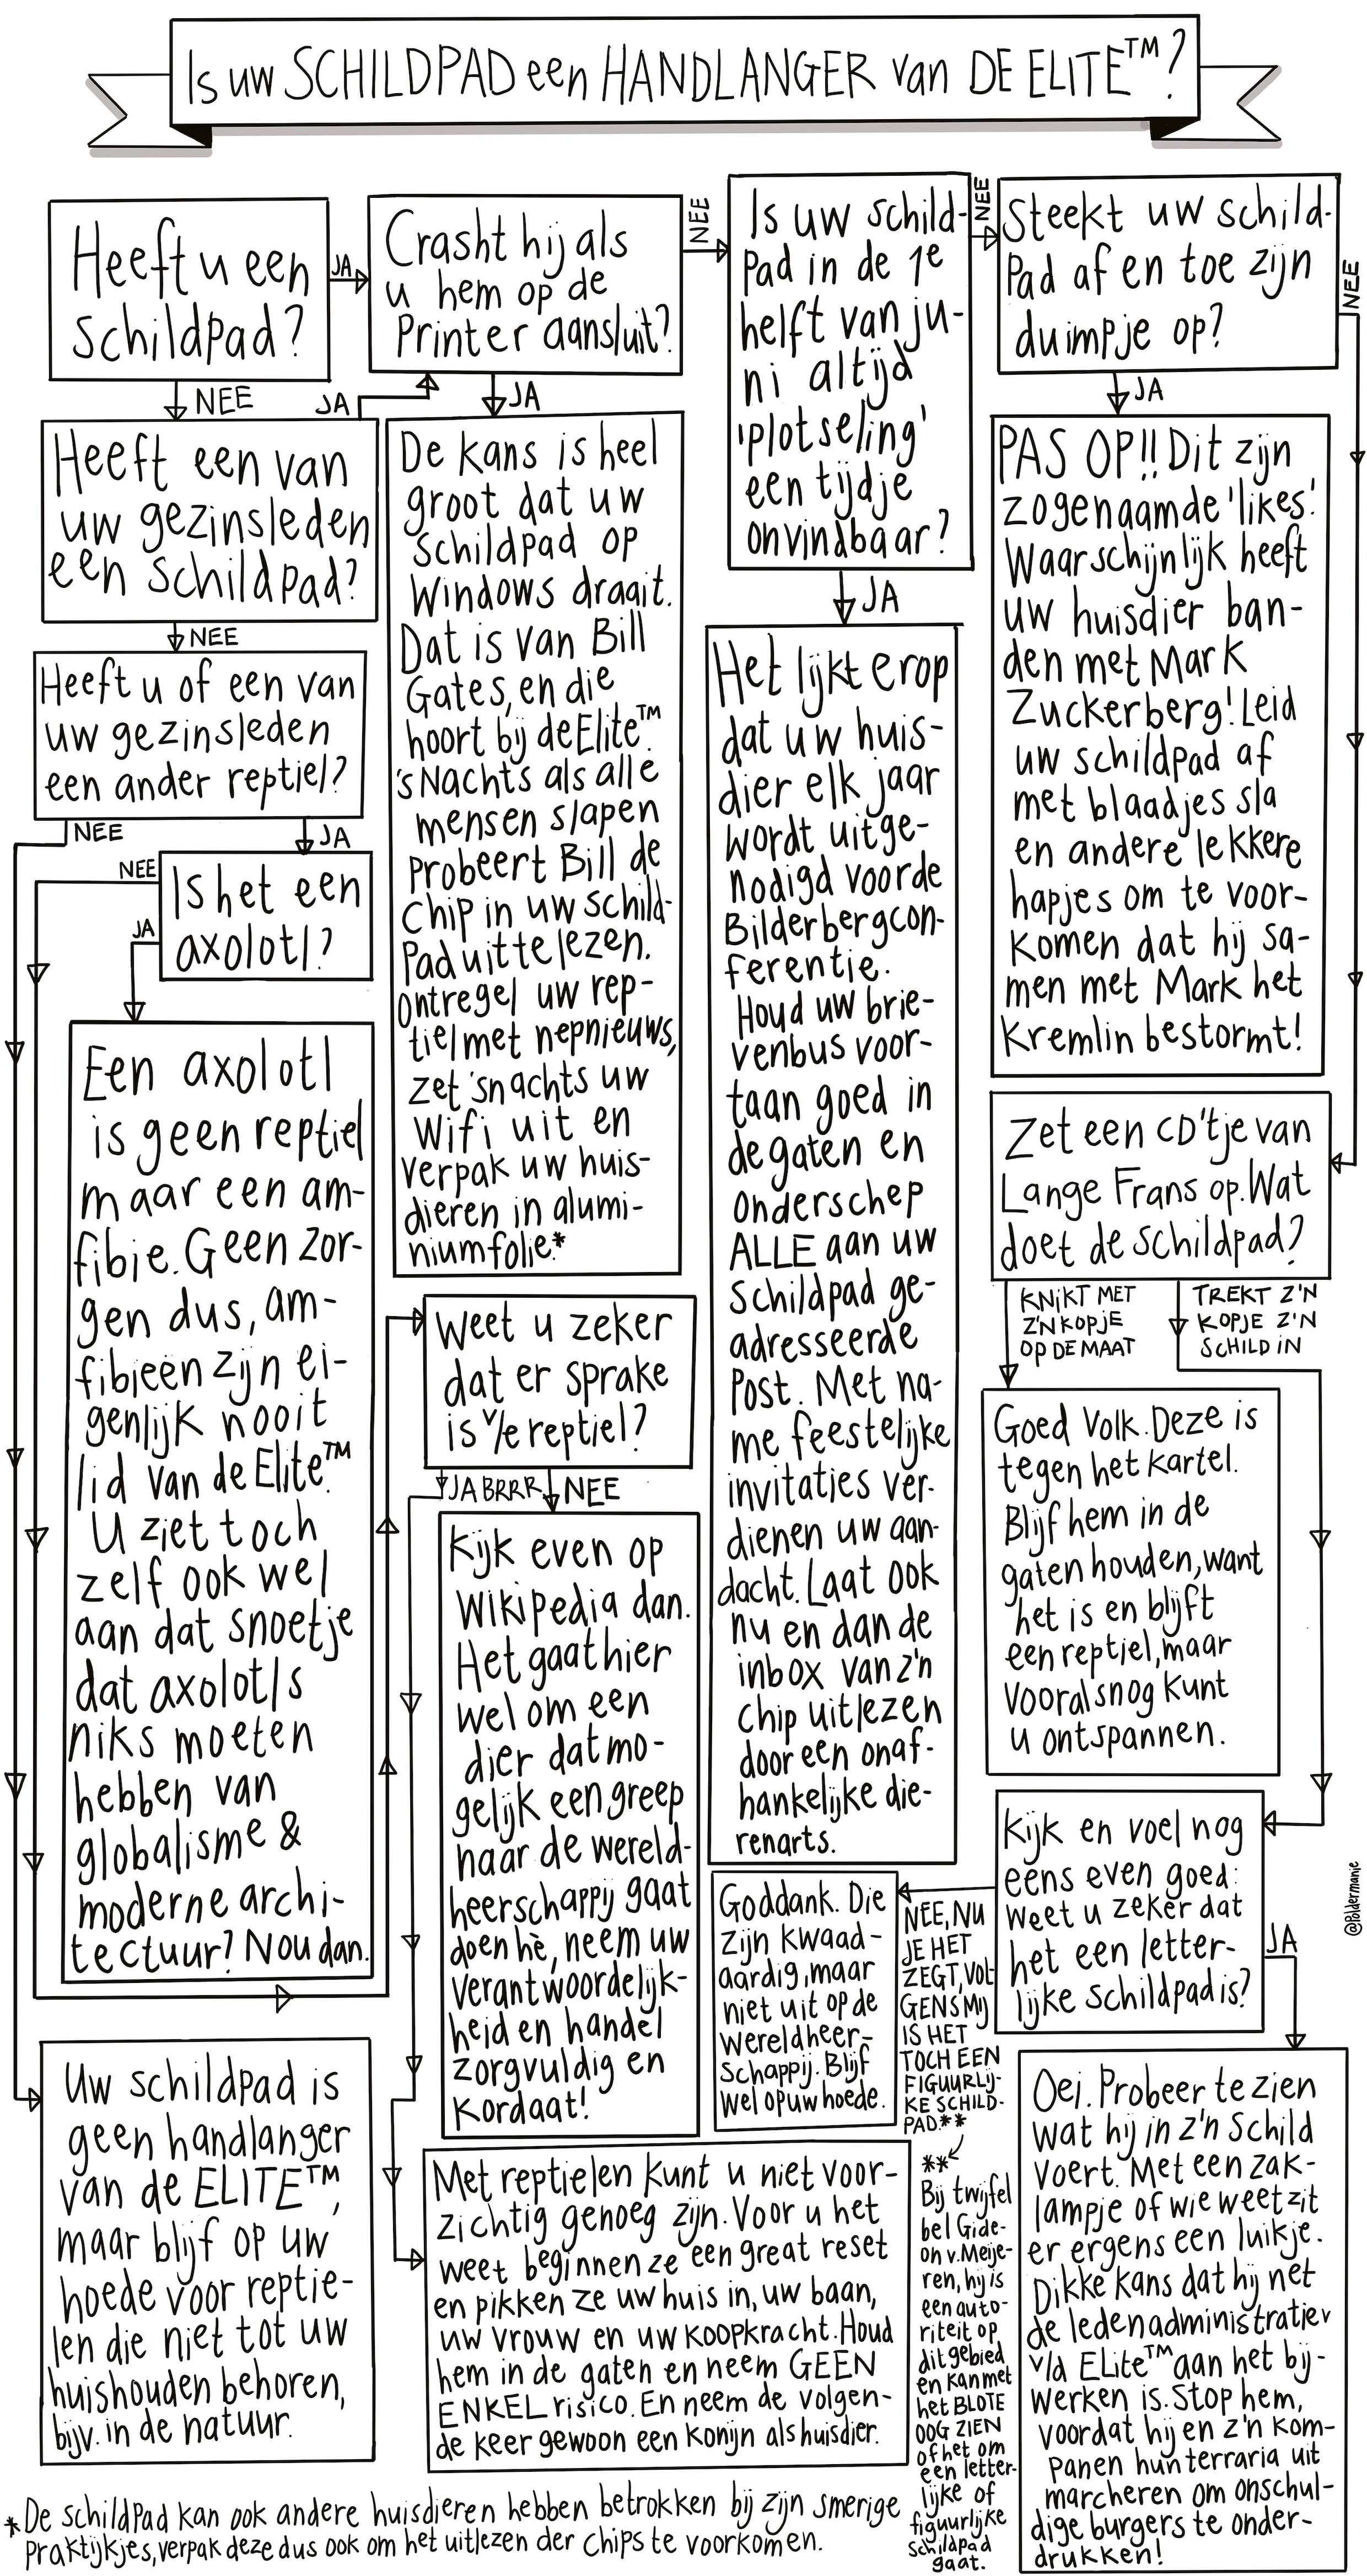 Is uw SCHILDPAD een HANDLANGER van DE ELITE™?
Heeft u een
schildpad?
JA
NEE
Crasht hij als
u hem op de
Printer aansluit?
NEE
JA
Is uw schild-
pad in de 1e
helft van ju-
ni altijd
'plotseling'
een tijdje
onvindbaar?
NEE
JA
Steekt uw schild-
pad af en toe zijn
duimpje op?
NEE
JA
Heeft een van
uw gezinsleden
een schildpad?
JA
NEE
Heeft u of een van
uw gezinsleden
een ander reptiel?
NEE
JA
Is het een
axolotl?
NEE
JA
Een axolotl
is geen reptiel
maar een am-
fibie. Geen zor-
gen dus, am-
fibieën zijn ei-
genlijk nooit
lid van de Elite™.
U ziet toch
zelf ook wel
aan dat snoetje
dat axolotls
niks moeten
hebben van
globalisme &
moderne archi-
tectuur? Nou dan.
Uw schildpad is
geen handlanger
van de ELITE™,
maar blijf op uw
hoede voor reptie-
len die niet tot uw
huishouden behoren,
bijv. in de natuur.
De kans is heel
groot dat uw
schildpad op
Windows draait.
Dat is van Bill
Gates, en die
hoort bij de Elite™.
's Nachts als alle
mensen slapen
probeert Bill de
Chip in uw schild-
pad uit te lezen.
Ontregel uw rep-
tiel met nepnieuws,
zet 'snachts uw
Wifi uit en
verpak uw huis-
dieren in alumi-
niumfolie.*
Weet u zeker
dat er sprake
is v/e reptiel?
JA BRRR
NEE
Kijk even op
Wikipedia dan.
Het gaat hier
wel om een
dier dat mo-
gelijk een greep
naar de wereld-
heerschappij gaat
doen hè, neem uw
verantwoordelijk-
heid en handel
zorgvuldig en
kordaat!
Met reptielen kunt u niet voor-
zichtig genoeg zijn. Voor u het
weet beginnen ze een great reset
en pikken ze uw huis in, uw baan,
uw vrouw en uw koopkracht. Houd
hem in de gaten en neem GEEN
ENKEL risico. En neem de volgen-
de keer gewoon een konijn als huisdier.
Het lijkt erop
dat uw huis-
dier elk jaar
wordt uitge-
nodigd voor de
Bilderbergcon-
ferentie.
Houd uw brie-
venbus voor-
taan goed in
de gaten en
onderschep
ALLE aan uw
schildpad ge-
adresseerde
post. Met na-
me feestelijke
invitaties ver-
dienen uw aan-
dacht. Laat ook
nu en dan de
inbox van z'n
chip uitlezen
door een onaf-
hankelijke die-
renarts.
PAS OP!! Dit zijn
zogenaamde 'likes'.
Waarschijnlijk heeft
uw huisdier ban-
den met Mark
Zuckerberg! Leid
uw schildpad af
met blaadjes sla
en andere lekkere
hapjes om te voor-
komen dat hij sa-
men met Mark het
Kremlin bestormt!
Zet een CD'tje van
Lange Frans op. Wat
doet de schildpad?
KNIKT MET
Z'N KOPJE
OP DE MAAT
TREKT Z'N
KOPJE Z'N
SCHILD IN
Goed Volk. Deze is
tegen het kartel.
Blijf hem in de
gaten houden, want
het is en blijft
een reptiel, maar
vooralsnog kunt
u ontspannen.
Kijk en voel nog
eens even goed:
weet u zeker dat
het een letter-
lijke schildpad is?
JA
NEE, NU
JE HET
ZEGT, VOL-
GENS MIJ
IS HET
TOCH EEN
FIGUURLIJ-
KE SCHILD-
PAD.**
Goddank. Die
zijn kwaad-
aardig, maar
niet uit op de
wereldheer-
schappij. Blijf
wel op uw hoede.
**
Bij twijfel
bel Gide-
on v. Meije-
ren, hij is
een auto-
riteit op
dit gebied
en kan met
het BLOTE
OOG ZIEN
of het om
een letter-
lijke of
figuurlijke
schildpad
gaat.
Oei. Probeer te zien
wat hij in z'n schild
voert. Met een zak-
lampje of wie weet zit
er ergens een luikje.
Dikke kans dat hij net
de ledenadministratie
v/d Elite™ aan het bij-
werken is. Stop hem,
voordat hij en z'n kom-
panen hun terraria uit
marcheren om onschul-
dige burgers te onder-
drukken!
@Poldermanie
*De schildpad kan ook andere huisdieren hebben betrokken bij zijn smerige
praktijkjes, verpak deze dus ook om het uitlezen der chips te voorkomen.